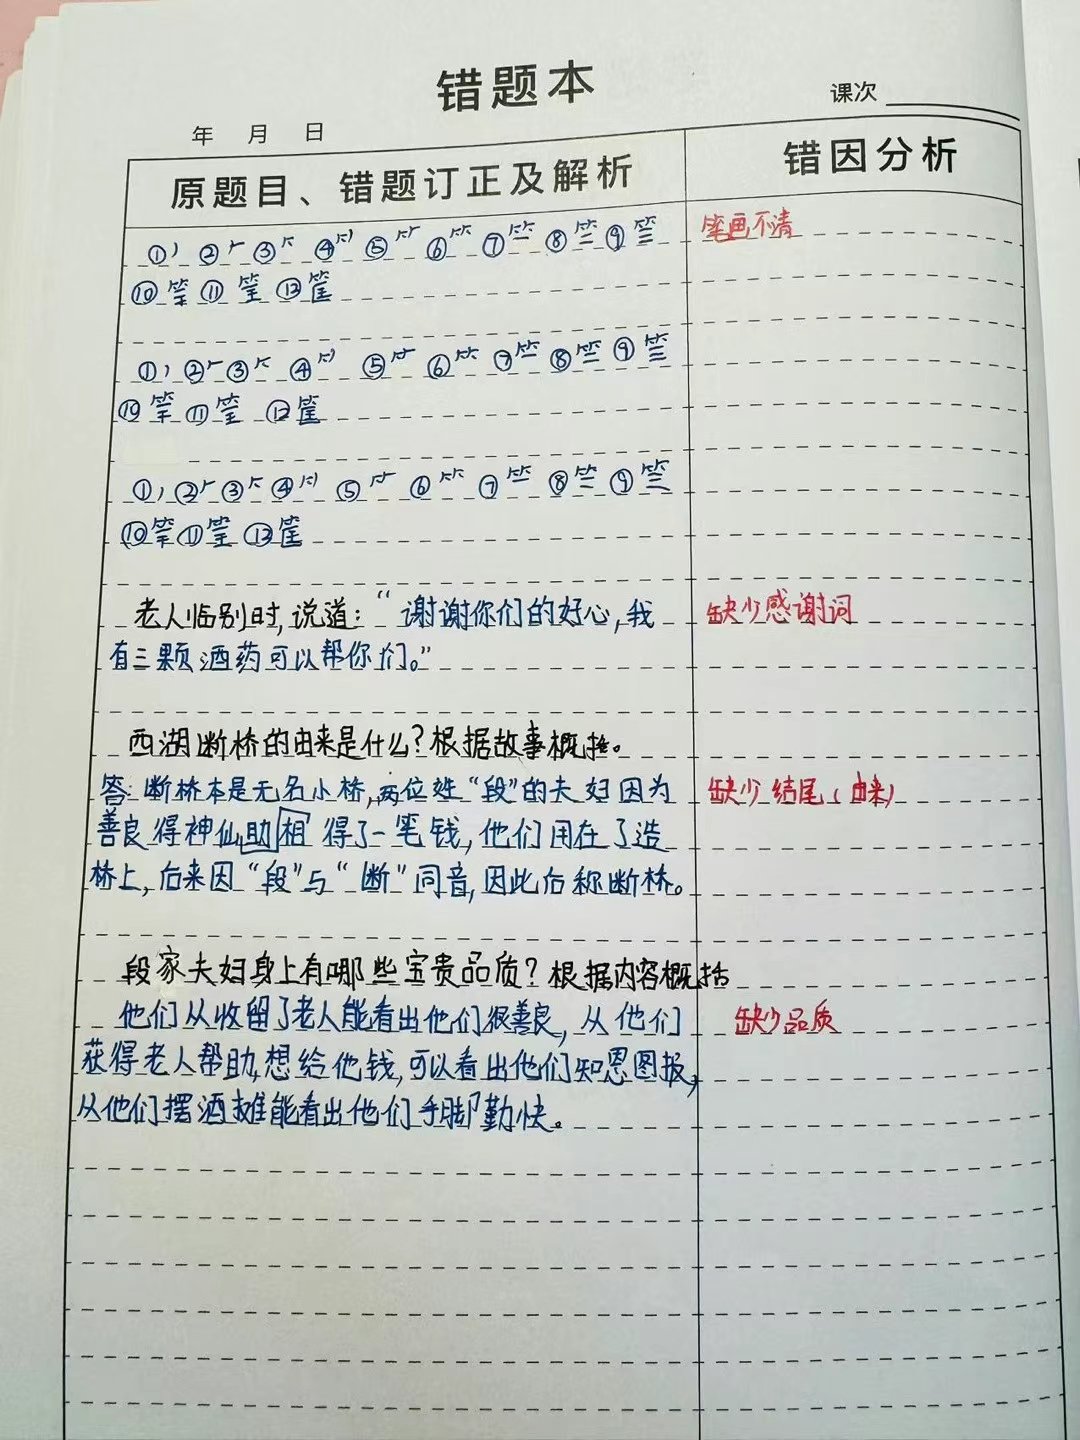 错题本
课次
年 月 日
原题目、错题订正及解析 错因分析
① ② ③ ④ ⑤ ⑥ ⑦ ⑧ ⑨ 笔画不清
⑩ ⑪ ⑫筐
① ② ③ ④ ⑤ ⑥ ⑦ ⑧ ⑨
⑩ ⑪ ⑫筐
① ② ③ ④ ⑤ ⑥ ⑦ ⑧ ⑨
⑩ ⑪ ⑫筐
老人临别时,说道:“谢谢你们的好心,我 缺少感谢词
有三颗酒药可以帮你们。”
西湖断桥的由来是什么?根据故事概括。
答:断桥本是无名小桥,两位姓“段”的夫妇因为 缺少结尾(由来)
善良得神仙助相得了一笔钱,他们用在了造
桥上,后来因“段”与“断”同音,因此后称断桥。
段家夫妇身上有哪些宝贵品质?根据内容概括
他们从收留了老人能看出他们很善良,从他们 缺少品质
获得老人帮助,想给他钱,可以看出他们知恩图报,
从他们摆酒摊能看出他们手脚勤快。